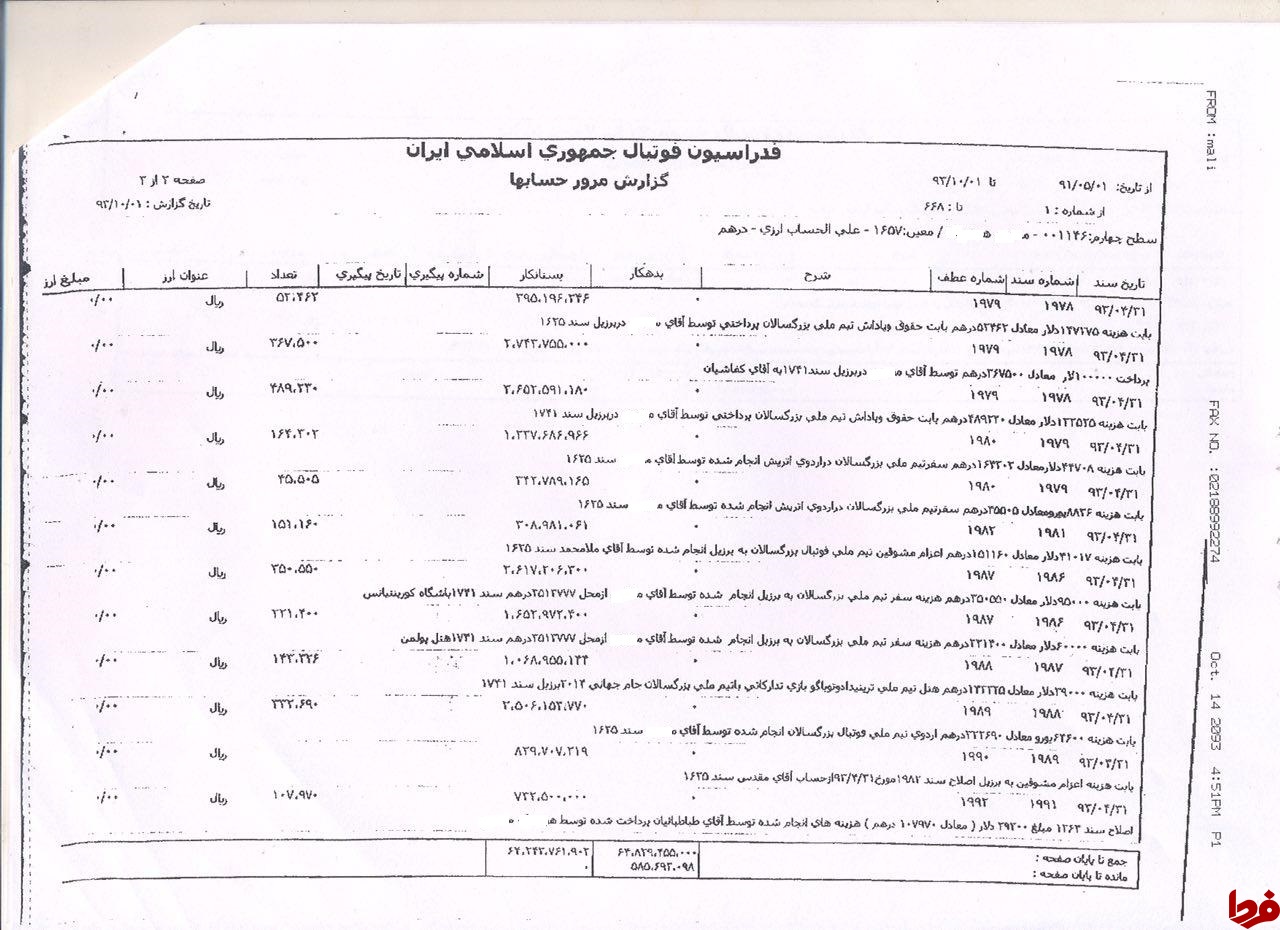 فدراسيون فوتبال جمهوري اسلامي ايران
گزارش مرور حسابها
از تاريخ: ۹۱/۰۵/۰۱ تا ۹۳/۱۰/۰۱
صفحه ۲ از ۳
از شماره : ۱ تا : ۶۶۸
تاريخ گزارش : ۹۳/۱۰/۰۱
سطح چهارم:۰۰۱۱۴۶ - م ه / معين:۱۶۵۷ - علي الحساب ارزي - درهم
تاريخ سند شماره سند شماره عطف شرح بدهكار بستانكار شماره پيگيري تاريخ پيگيري تعداد عنوان ارز مبلغ ارز
۹۳/۰۴/۳۱ ۱۹۷۸ ۱۹۷۹ ۰ ۳۹۵،۱۹۶،۲۴۶ ۵۲،۴۶۲ ريال ۰/۰۰
بابت هزينه ۱۴۷۱۷۵دلار معادل ۵۲۴۶۲درهم بابت حقوق وپاداش تيم ملي بزرگسالان پرداختي توسط آقاي م دربرزيل سند ۱۶۲۵
۹۳/۰۴/۳۱ ۱۹۷۸ ۱۹۷۹ ۰ ۲،۷۴۳،۷۵۵،۰۰۰ ۳۶۷،۵۰۰ ريال ۰/۰۰
پرداخت ۱۰۰۰۰۰لار معادل ۳۶۷۵۰۰درهم توسط آقاي م دربرزيل سند۱۷۴۱به آقاي كفاشيان
۹۳/۰۴/۳۱ ۱۹۷۸ ۱۹۷۹ ۰ ۳،۶۵۲،۵۹۱،۱۸۰ ۴۸۹،۲۳۰ ريال ۰/۰۰
بابت هزينه ۱۳۲۵۲۵دلار معادل ۴۸۹۲۳۰درهم بابت حقوق وپاداش تيم ملي بزرگسالان پرداختي توسط آقاي م دربرزيل سند ۱۷۴۱
۹۳/۰۴/۳۱ ۱۹۷۹ ۱۹۸۰ ۰ ۱،۲۳۷،۶۸۶،۹۶۶ ۱۶۴،۳۰۲ ريال ۰/۰۰
بابت هزينه ۴۴۷۰۸دلارمعادل ۱۶۴۳۰۲درهم سفرتيم ملي بزرگسالان دراردوي اتريش انجام شده توسط آقاي م سند ۱۶۲۵
۹۳/۰۴/۳۱ ۱۹۷۹ ۱۹۸۰ ۰ ۳۴۲،۷۸۹،۱۶۵ ۴۵،۵۰۵ ريال ۰/۰۰
بابت هزينه ۸۸۲۶يورومعادل ۴۵۵۰۵درهم سفرتيم ملي بزرگسالان دراردوي اتريش انجام شده توسط آقاي م سند ۱۶۲۵
۹۳/۰۴/۳۱ ۱۹۸۱ ۱۹۸۲ ۰ ۳۰۸،۹۸۱،۰۶۱ ۱۵۱،۱۶۰ ريال ۰/۰۰
بابت هزينه ۴۱۰۱۷دلار معادل ۱۵۱۱۶۰درهم اعزام مشوقين تيم ملي فوتبال بزرگسالان به برزيل انجام شده توسط آقاي ملامحمد سند ۱۶۲۵
۹۳/۰۴/۳۱ ۱۹۸۶ ۱۹۸۷ ۰ ۲،۶۱۷،۲۰۶،۳۰۰ ۳۵۰،۵۵۰ ريال ۰/۰۰
بابت هزينه ۹۵۰۰۰دلار معادل ۳۵۰۵۵۰درهم هزينه سفر تيم ملي بزرگسالان به برزيل انجام شده توسط آقاي م ازمحل ۲۵۱۳۷۷۷درهم سند ۱۷۴۱باشگاه كورينتيانس
۹۳/۰۴/۳۱ ۱۹۸۶ ۱۹۸۷ ۰ ۱،۶۵۲،۹۷۲،۴۰۰ ۲۲۱،۴۰۰ ريال ۰/۰۰
بابت هزينه ۶۰۰۰۰دلار معادل ۲۲۱۴۰۰درهم هزينه سفر تيم ملي بزرگسالان به برزيل انجام شده توسط آقاي م ازمحل ۲۵۱۳۷۷۷درهم سند ۱۷۴۱هتل پولمن
۹۳/۰۴/۳۱ ۱۹۸۷ ۱۹۸۸ ۰ ۱،۰۶۸،۹۵۵،۱۴۴ ۱۴۳،۲۲۶ ريال ۰/۰۰
بابت هزينه ۳۹۰۰۰دلار معادل ۱۴۳۲۲۵درهم هتل تيم ملي ترينيدادوتوباگو بازي تداركاتي باتيم ملي بزرگسالان جام جهاني ۲۰۱۴برزيل سند ۱۷۴۱
۹۳/۰۴/۳۱ ۱۹۸۸ ۱۹۸۹ ۰ ۲،۵۰۶،۱۵۳،۷۷۰ ۳۳۲،۶۹۰ ريال ۰/۰۰
بابت هزينه ۶۴۶۰۰يورو معادل ۳۳۲۶۹۰درهم اردوي تيم ملي فوتبال بزرگسالان انجام شده توسط آقاي م سند ۱۶۲۵
۹۳/۰۴/۳۱ ۱۹۸۹ ۱۹۹۰ ۰ ۸۲۹،۷۰۷،۳۱۹ ريال ۰/۰۰
بابت هزينه اعزام مشوقين به برزيل اصلاح سند ۱۹۸۲مورخ۹۳/۴/۳۱ازحساب آقاي مقدس سند ۱۶۲۵
۹۳/۰۴/۳۱ ۱۹۹۱ ۱۹۹۲ ۰ ۷۳۲،۵۰۰،۰۰۰ ۱۰۷،۹۷۰ ريال ۰/۰۰
اصلاح سند ۱۲۶۳ مبلغ ۲۹۳۰۰ دلار ( معادل ۱۰۷۹۷۰ درهم ) هزينه هاي انجام شده توسط آقاي طباطبائيان پرداخت شده توسط ه
جمع تا پايان صفحه : ۶۴،۸۲۹،۴۵۵،۰۰۰ ۶۴،۲۴۳،۷۶۱،۹۰۲
مانده تا پايان صفحه : ۵۸۵،۶۹۳،۰۹۸ ۰
FROM :mali FAX NO. :02188992274 Oct. 14 2093 4:51PM P1
فردا